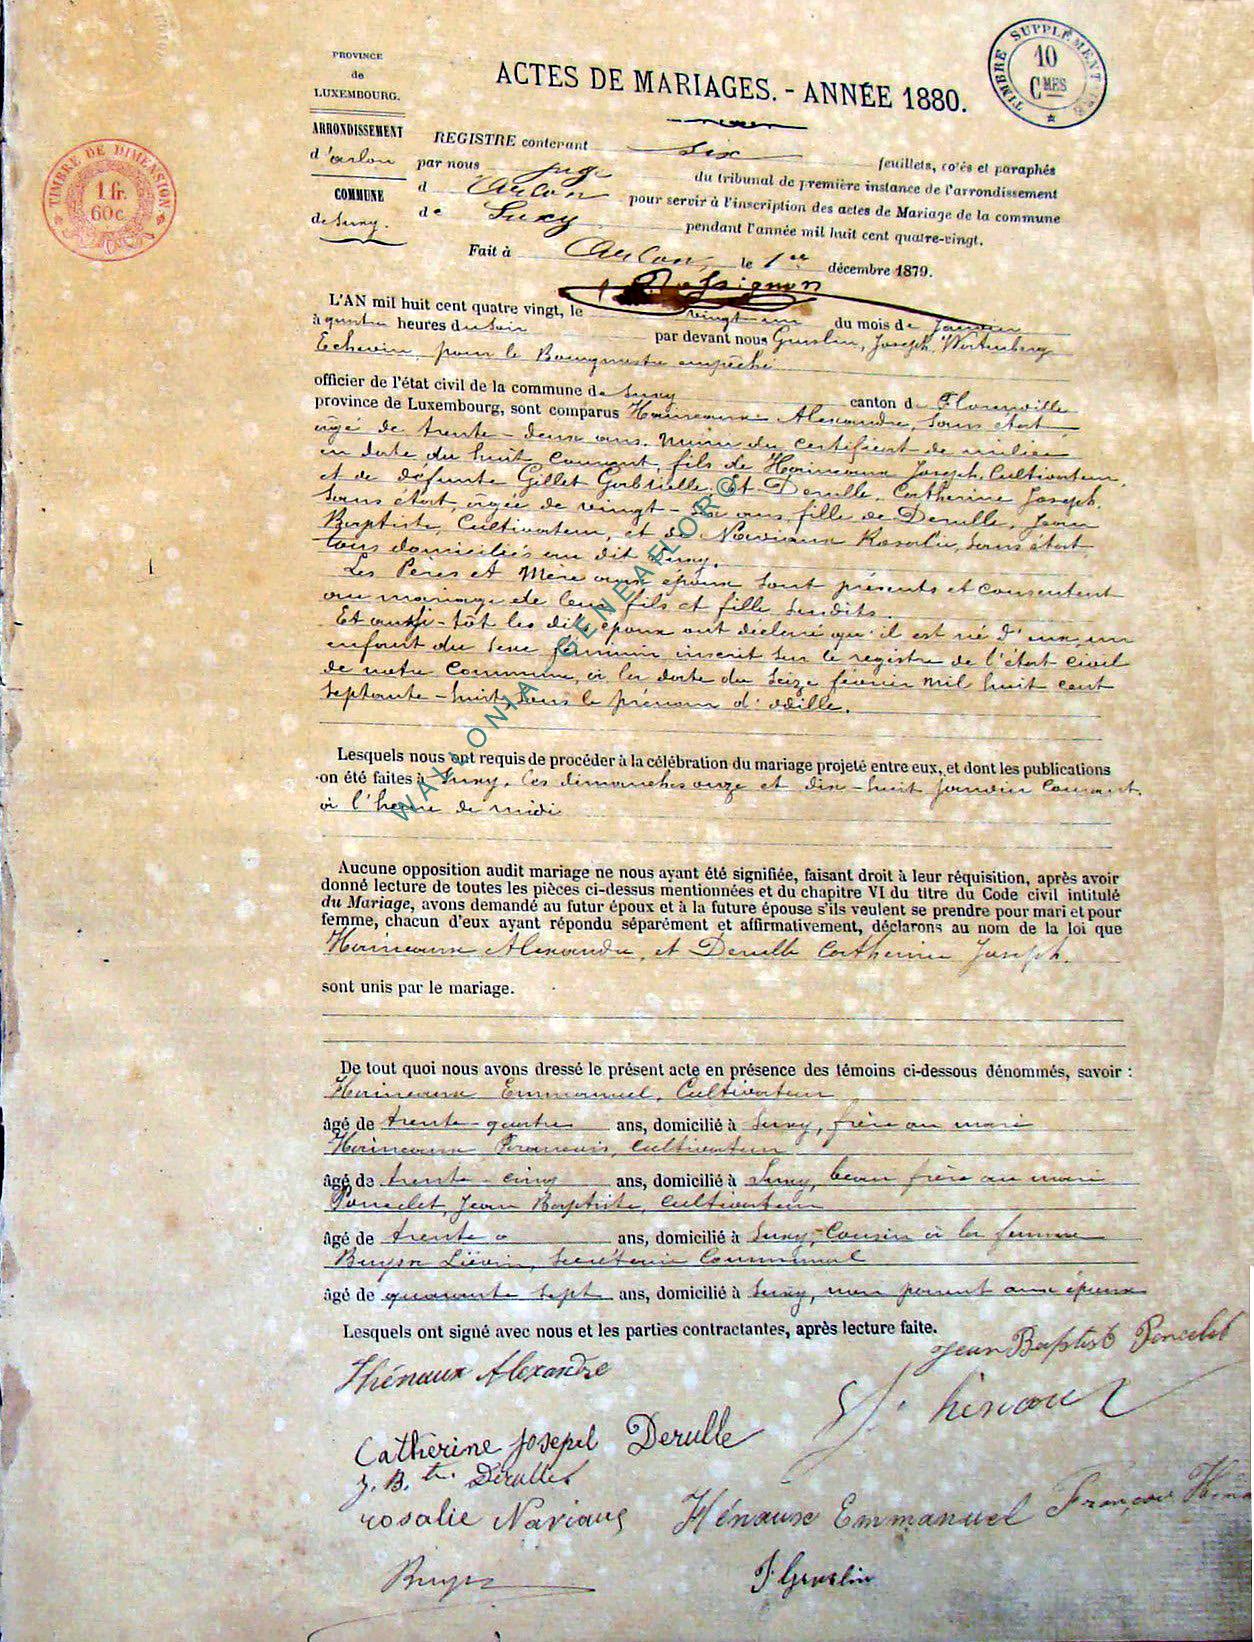 PROVINCE
de
LUXEMBOURG.
ARRONDISSEMENT
d'arlon
COMMUNE
de Suxy.
TIMBRE DE DIMENSION
1 fr.
60 c.
TIMBRE SUPPLÉMENTAIRE
10
CMES
ACTES DE MARIAGES. - ANNÉE 1880.
REGISTRE contenant six feuillets, cotés et paraphés
par nous juge du tribunal de première instance de l'arrondissement
d'Arlon pour servir à l'inscription des actes de Mariage de la commune
de Suxy pendant l'année mil huit cent quatre-vingt.
Fait à Arlon, le 1er décembre 1879.
L'AN mil huit cent quatre vingt, le vingt-un du mois de Janvier
à quatre heures du soir par devant nous Guslin, Joseph, Wurtemberg
Echevin, pour le Bourgmestre empêché
officier de l'état civil de la commune de Suxy canton de Florenville
province de Luxembourg, sont comparus Haineaux Alexandre, sans état
âgé de trente-deux ans, muni du certificat de milice
en date du huit courant, fils de Haineaux Joseph, Cultivateur,
et de défunte Gillet Gabrielle. Et Derulle, Catherine Joseph,
sans état, âgée de vingt-six ans, fille de Derulle, Jean
Baptiste, Cultivateur, et de Naviaux Rosalie, sans état
tous domiciliés au dit Suxy.
Les Pères et Mère aux époux sont présents et consentent
au mariage de leurs fils et fille susdits.
Et aussi-tôt les dits époux ont déclaré qu'il est né d'eux, un
enfant du sexe féminin inscrit sur le registre de l'état civil
de notre Commune, à la date du seize février mil huit cent
septante-huit, sous le prénom d'odille.
Lesquels nous ont requis de procéder à la célébration du mariage projeté entre eux, et dont les publications
on été faites à Suxy, les dimanches onze et dix-huit janvier courant.
à l'heure de midi
Aucune opposition audit mariage ne nous ayant été signifiée, faisant droit à leur réquisition, après avoir
donné lecture de toutes les pièces ci-dessus mentionnées et du chapitre VI du titre du Code civil intitulé
du Mariage, avons demandé au futur époux et à la future épouse s'ils veulent se prendre pour mari et pour
femme, chacun d'eux ayant répondu séparément et affirmativement, déclarons au nom de la loi que
Haineaux Alexandre, et Derulle Catherine Joseph.
sont unis par le mariage.
De tout quoi nous avons dressé le présent acte en présence des témoins ci-dessous dénommés, savoir :
Haineaux Emmanuel, Cultivateur
âgé de trente-quatre ans, domicilié à Suxy, frère au mari
Haineaux François, cultivateur
âgé de trente-cinq ans, domicilié à Suxy, beau frère au mari
Poncelet, Jean Baptiste, cultivateur
âgé de trente ans, domicilié à Suxy, Cousin à la femme
Liévin, Secrétaire Communal
âgé de quarante sept ans, domicilié à Suxy, non parent aux époux
Lesquels ont signé avec nous et les parties contractantes, après lecture faite.
Jean Baptist Poncelet
Hénaux Alexandre
Catherine Josepel Derulle
J. Btte Derulle
rosalie Naviaux Hénaux Emmanuel François
J Guslin
WALLONIA GENEAFLOR ©